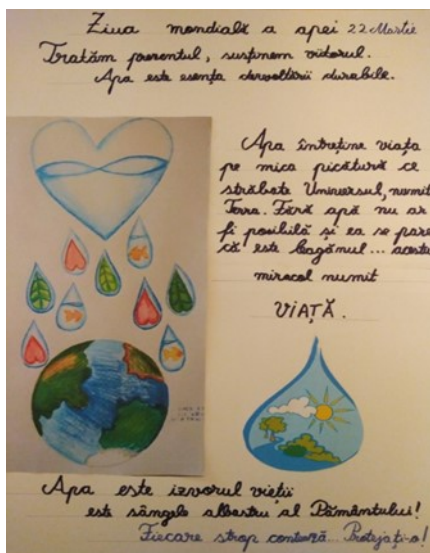 Ziua mondială a apei 22 Martie
Tratăm prezentul, susținem viitorul.
Apa este esența dezvoltării durabile.
Apa întreține viața
pe mica picătură ce
străbate Universul, numit
Terra. Fără apă nu ar
fi posibilă și ea se pare
că este leagănul... acestui
miracol numit
VIAȚĂ.
Apa este izvorul vieții
este sângele albastru al Pământului!
Fiecare strop contează... Protejați-o!